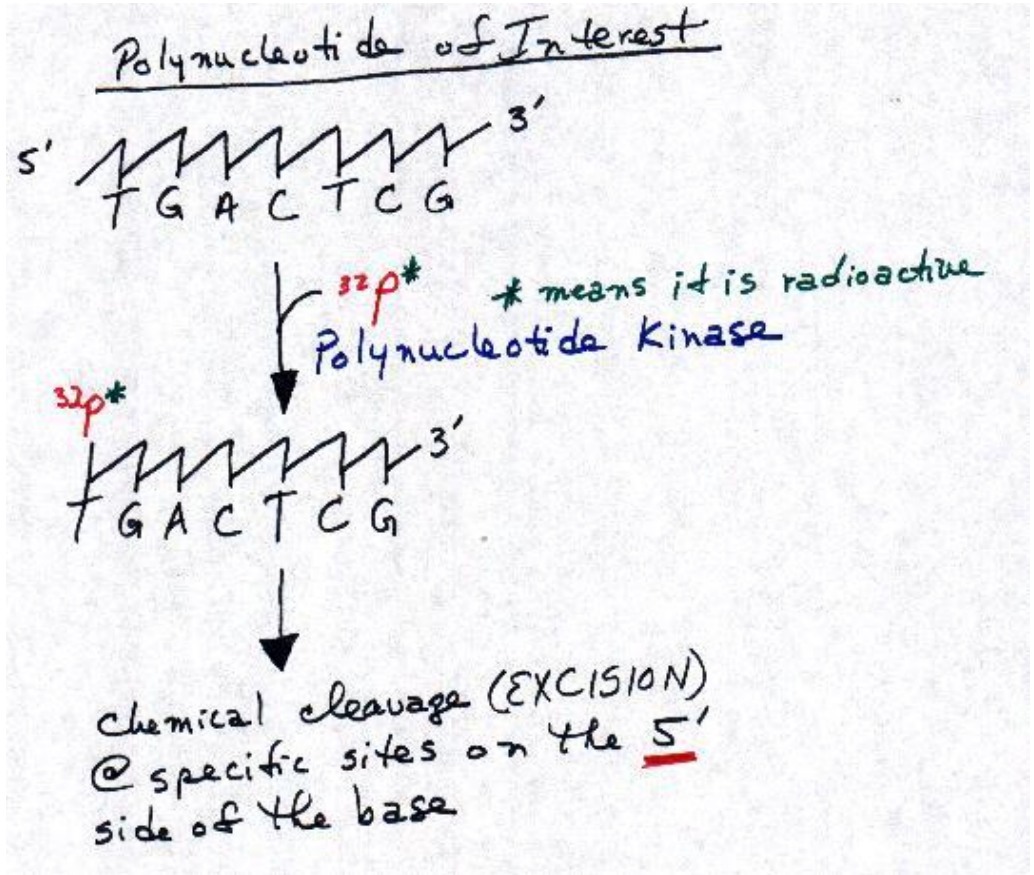 Polynucleotide of Interest
5' 3'
T G A C T C G
32P* * means it is radioactive
Polynucleotide Kinase
32P*
3'
T G A C T C G
Chemical cleavage (EXCISION)
@ specific sites on the 5'
side of the base